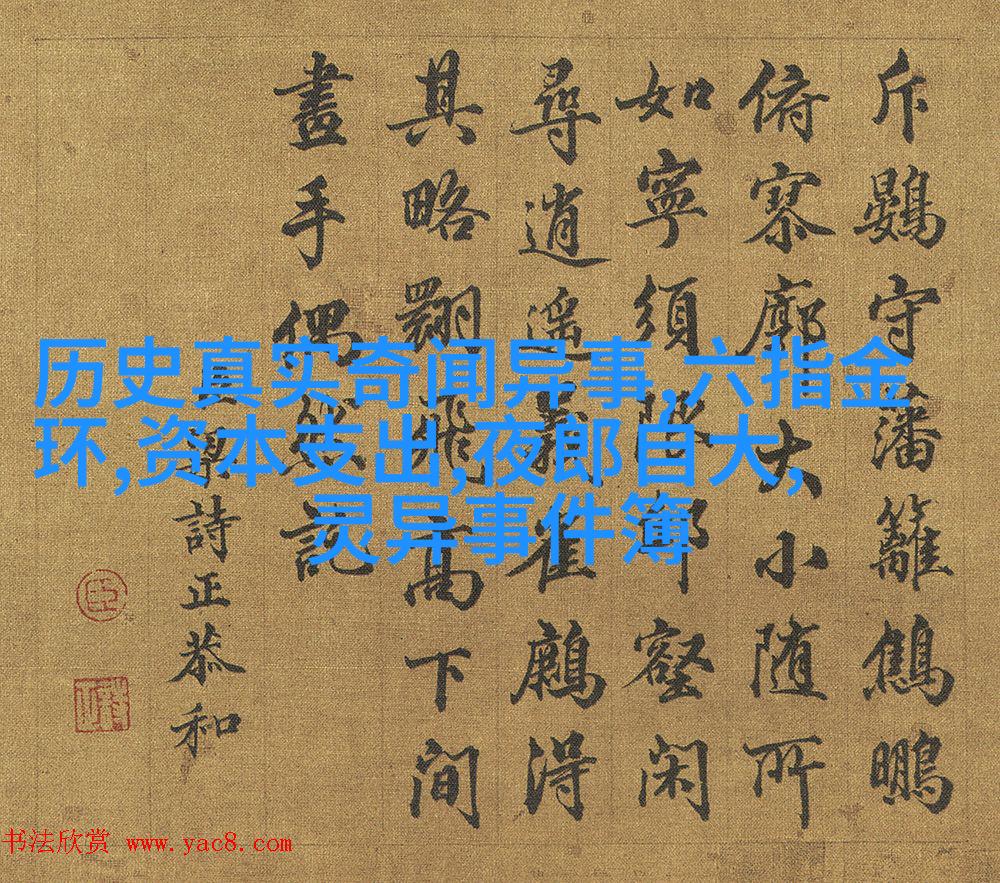 历史真实奇闻异事,六指金
环,资本支出,夜郎自大,
灵异事件簿
斥鷃守藩籬鷦鵬
俯寥廓大小随所
如寧須壑闲
尋逍遥義雀得
其略翺飛高下间
畫手偶然託
詩正恭和
臣
书法欣赏 www.yac8.com